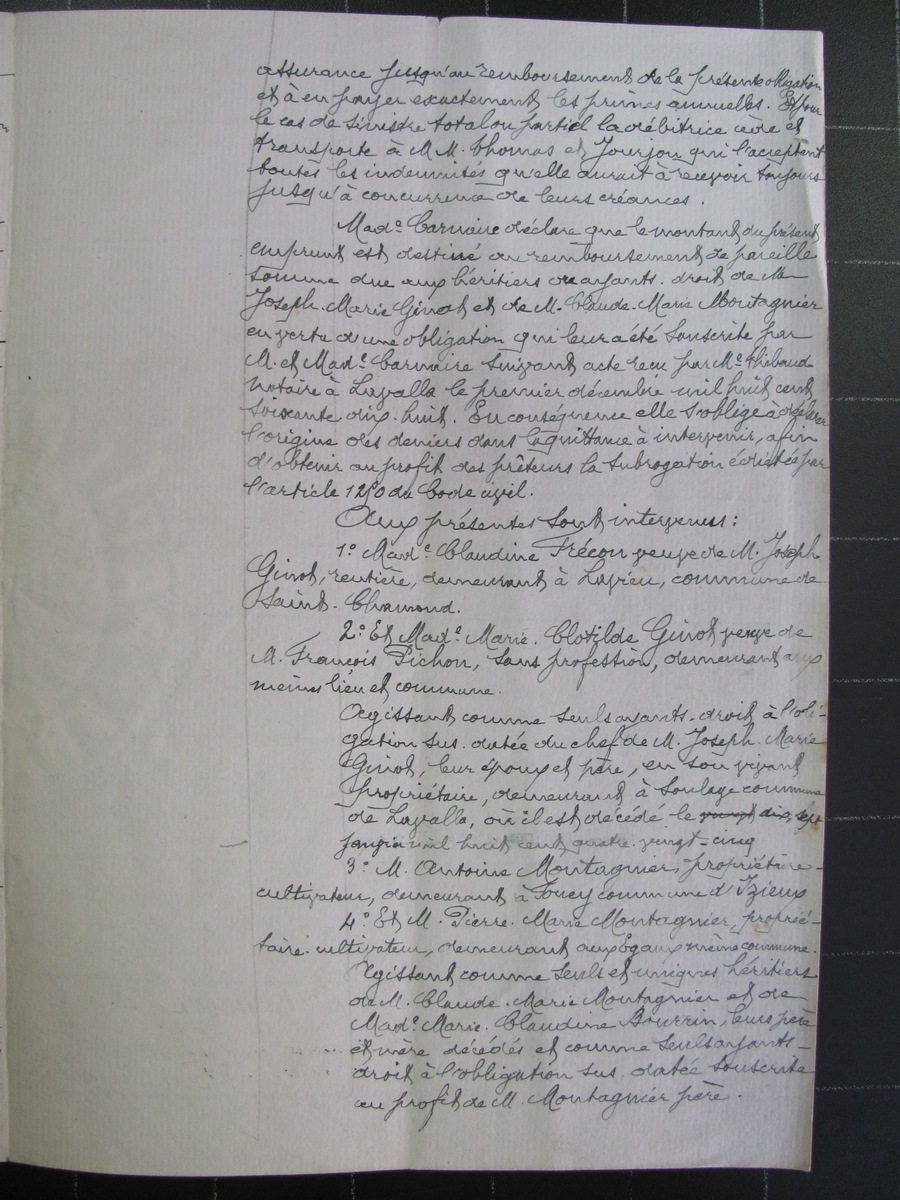 assurance jusqu'au remboursement de la présente obligation
et à en payer exactement les primes annuelles. Et pour
le cas de sinistre total ou partiel la débitrice cède et
transporte à M M. Thomas et Jourjon qui l'acceptent
toutes les indemnités qu'elle aurait à recevoir toujours
jusqu'à concurrence de leurs créances.
Made. Carnoire déclare que le montant du présent
emprunt est destiné au remboursement de pareille
somme due aux héritiers ou ayants-droit de M
Joseph-Marie Ginot et de M. Claude-Marie Montagnier
en vertu d'une obligation qui leur a été souscrite par
M. et Made. Carnoire suivant acte reçu par Me. Thibaud
notaire à Lavalla le premier décembre mil huit cent
soixante dix-huit. En conséquence elle s'oblige à déclarer
l'origine des deniers dans la quittance à intervenir, afin
d'obtenir au profit des prêteurs la subrogation édictée par
l'article 1250 du Code civil.
Aux présentes sont intervenus :
1° Made Claudine Frécon veuve de M. Joseph
Ginot, rentière, demeurant à Lavieu, commune de
Saint-Chamond.
2° Et Made. Marie-Clotilde Ginot veuve de
M. François Pichon, sans profession, demeurant aux
mêmes lieu et commune.
Agissant comme seuls ayants-droit à l'obli-
gation sus-datée du chef de M. Joseph-Marie
Ginot, leur époux et père, en son vivant
propriétaire, demeurant à Soulage commune
de Lavalla, où il est décédé le vingt dix sept
janvier mil huit cent quatre-vingt-cinq
3° M. Antoine Montagnier, propriétaire-
cultivateur, demeurant à commune d'Izieux
4° Et M. Pierre-Marie Montagnier, proprié-
taire-cultivateur, demeurant aux Egaux même commune.
Agissant comme seuls et uniques héritiers
de M. Claude-Marie Montagnier et de
Made. Marie-Claudine Bourrin, leurs père
et mère décédés et comme seuls ayants-
droit à l'obligation sus-datée souscrite
au profit de M. Montagnier père.